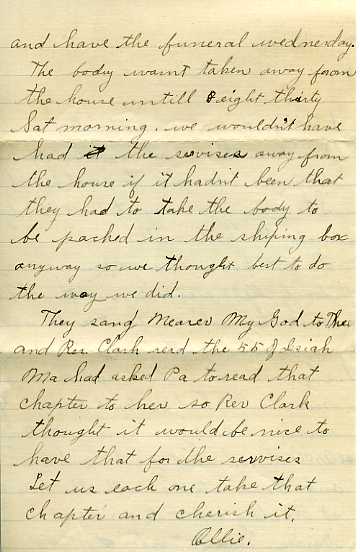 and have the funeral wednesday.
The body wasnt taken away from
the house untill eight thirty
Sat morning. we wouldn't have
had it the servises away from
the house if it hadn't been that
they had to take the body to
be packed in the shiping box
anyway so we thought best to do
the way we did.
They sang Nearer My God to Thee
and Rev. Clark read the 55 of Isiah
Ma had asked Pa to read that
chapter to her so Rev Clark
thought it would be nice to
have that for the servises
Let us each one take that
chapter and cherish it.
Ollie.